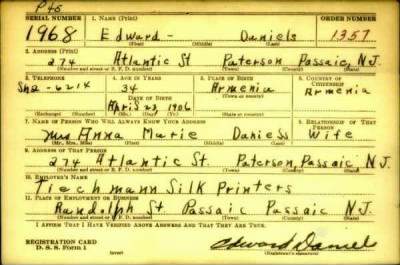 P45
SERIAL NUMBER 1. NAME (Print) ORDER NUMBER
1968 Edward - Daniels 1357
(First) (Middle) (Last)
2. ADDRESS (Print)
274 Atlantic St Paterson Passaic N.J.
(Number and street or R. F. D. number) (Town) (County) (State)
3. TELEPHONE 4. AGE IN YEARS 5. PLACE OF BIRTH 6. COUNTRY OF CITIZENSHIP
Sh2-6214 34 Armenia Armenia
DATE OF BIRTH (Town or county)
April 23 1906
(Exchange) (Number) (Mo.) (Day) (Yr.) (State or country)
7. NAME OF PERSON WHO WILL ALWAYS KNOW YOUR ADDRESS 8. RELATIONSHIP OF THAT PERSON
Mrs Anna Marie Daniess Wife
(Mr., Mrs., Miss) (First) (Middle) (Last)
9. ADDRESS OF THAT PERSON
274 Atlantic St. Paterson, Passaic N.J.
(Number and street or R. F. D. number) (Town) (County) (State)
10. EMPLOYER'S NAME
Tiechmann Silk Printers
11. PLACE OF EMPLOYMENT OR BUSINESS
Randolph St Passaic Passaic N.J.
(Number and street or R. F. D. number) (Town) (County) (State)
I AFFIRM THAT I HAVE VERIFIED ABOVE ANSWERS AND THAT THEY ARE TRUE.
REGISTRATION CARD
D. S. S. Form 1 (over) Edward Daniels